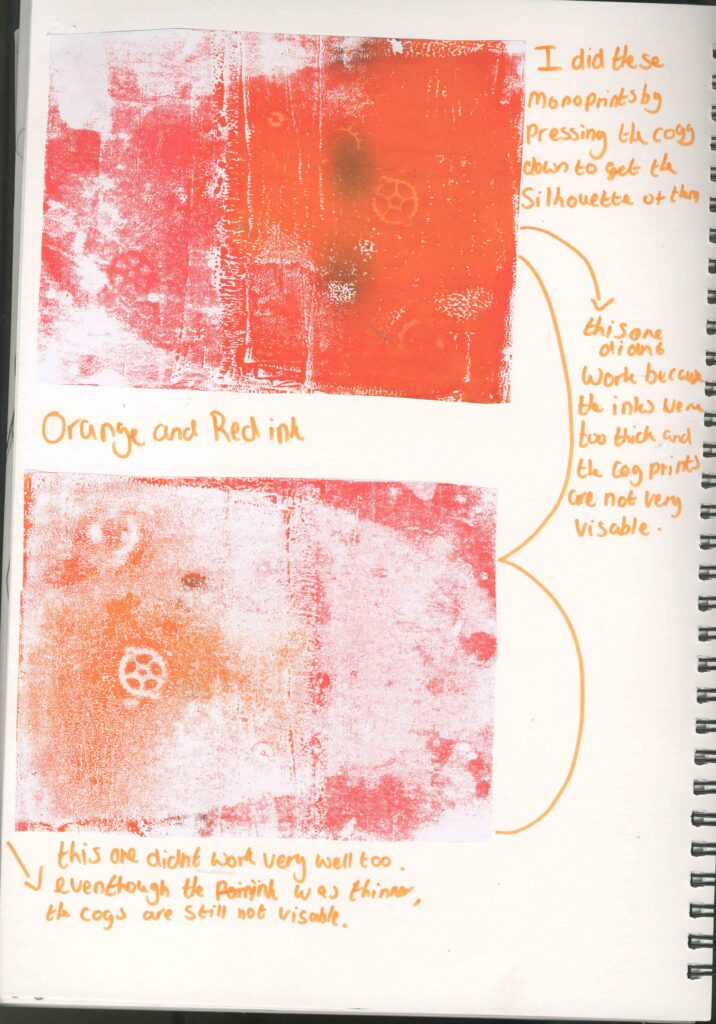 I did these
Monoprints by
Pressing the cogg
down to get the
Silhouette of them
this one
didnt
work because
the inks were
too thick and
the cog prints
are not very
visable.
Orange and Red ink
this one didnt work very well too.
eventhough the ink was thinner,
the cogs are still not visable.